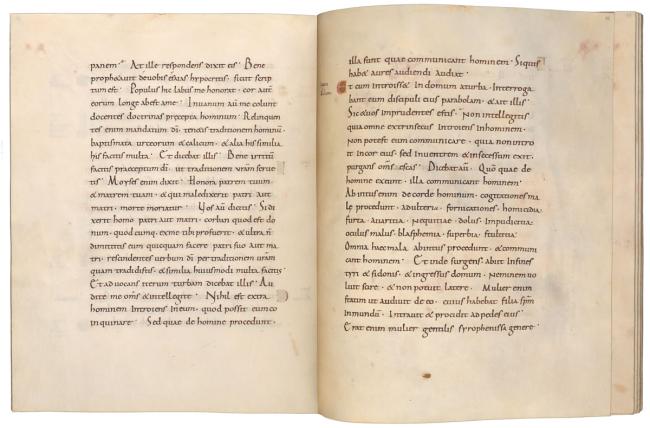 panem. At ille respondens dixit eis. Bene
prophetavit de vobis esaias hypocritis. sicut scrip
tum est. Populus hic labiis me honorat. cor aut
eorum longe abest a me. In vanum aut me colunt
docentes doctrinas precepta hominum. Relinquen
tes enim mandatum di. tenetis traditionem hominu.
baptismata urceorum & calicum. & alia his similia
his facitis multa. Et dicebat illis. Bene irritu
facitis praeceptum di. ut traditionem vram serve
tis. Moyses enim dixit. Honora patrem tuum
& matrem tuam. & qui maledixerit patri aut
matri. morte moriatur. Vos au dicitis. Si di
xerit homo patri aut matri. corban quod est do
num. quodcumq. ex me tibi profuerit. & ultra n
dimittitis eum quicquam facere patri suo aut ma
tri. rescindentes verbum di per traditionem vram
quam tradidistis. & similia huiusmodi multa facitis.
Et advocans iterum turbam dicebat illis. Au
dite me oms & intellegite. Nihil est extra
hominem introiens in eum. quod possit eum co
inquinare. Sed quae de homine procedunt.
illa sunt quae communicant hominem. Siquis
hab& aures audiendi audiat.
Et cum introiss& in domum a turba. Interroga
bant eum discipuli eius parabolam. & ait illis.
Sic & vos imprudentes estis. Non intellegitis
quia omne extrinsecus introiens in hominem.
Non potest eum communicare. quia non intro
it in cor eius. sed in ventrem & in secessum exit.
purgans oms escas. Dicebat au. Quo quae de
homine exeunt. illa communicant hominem.
Ab intus enim de corde hominum. cogitationes ma
le procedunt. adulteria. fornicationes. homicidia
furta. avaritia. Nequitiae. dolus. Impudicitia.
oculus malus. blasphemia. superbia. stultitia.
Omnia haec mala ab intus procedunt. & communi
cant hominem. Et inde surgens. abiit in fines
tyri & sidonis. & ingressus domum. Neminem vo
luit scire. & non potuit latere. Mulier enim
statim ut audivit de eo. cuius habebat filia spm
inmundu. Intravit & procidit ad pedes eius.
Erat enim mulier gentilis syrophenissa genere.